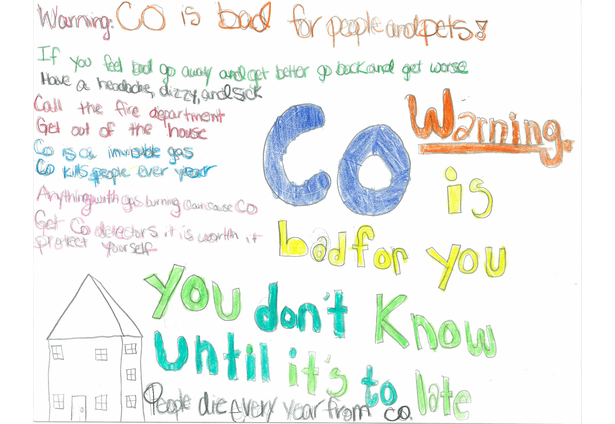 Warning: CO is bad for people and pets!
If you feel bad go away and get better go back and get worse
Have a headache, dizzy, and sick
Call the fire department
Get out of the house
Co is a invisible gas
Co kills people ever year
Anything with gas burning can cause CO
Get Co detectors it is worth it
protect yourself
Warning.
CO
is
bad for you
You don't Know
Until it's to late
People die every year from co.